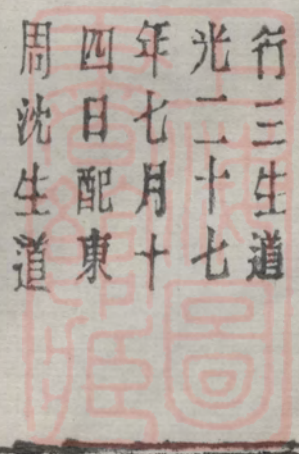 行三生道
光二十七
年七月十
四日配東
周沈生道